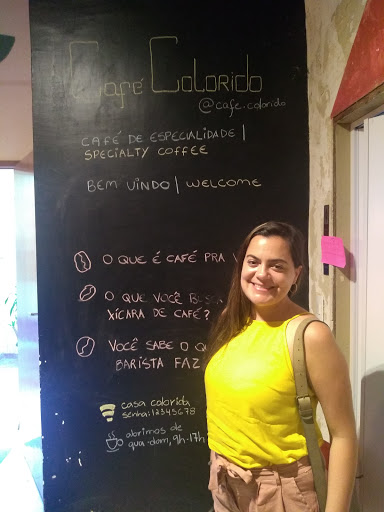 Café Colorido
@cafe.colorido
CAFÉ DE ESPECIALIDADE |
SPECIALTY COFFEE
BEM VINDO | WELCOME
O QUE É CAFÉ PRA
O QUE VOCÊ
XÍCARA DE CAFÉ?
VOCÊ SABE O
BARISTA FAZ
casa colorida
senha: 12345678
abrimos de
qua-dom, 9h-17h